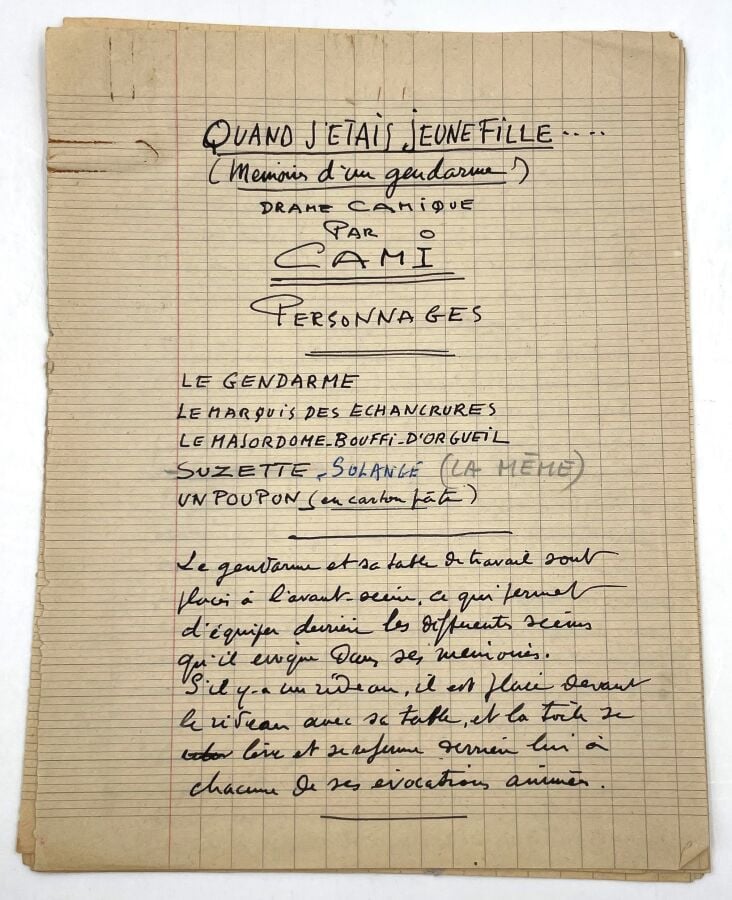 QUAND J'ETAIS JEUNE FILLE....
(Memoires d'un gendarme)
DRAME CAMIQUE
PAR
CAMI
PERSONNAGES
LE GENDARME
LE MARQUIS DES ECHANCRURES
LE MAJORDOME-BOUFFI-D'ORGUEIL
SUZETTE-SOLANGE (LA MÊME)
UN POUPON (en carton pâte)
Le gendarme et sa table de travail sont
placés à l'avant-scène, ce qui permet
d'équiper derrière les differents scènes
qu'il evoque dans ses memoires.
S'il y-a un rideau, il est placé devant
le rideau avec sa table, et la toile se
lève et se referme derrière lui à
chacune de ses évocations animées.